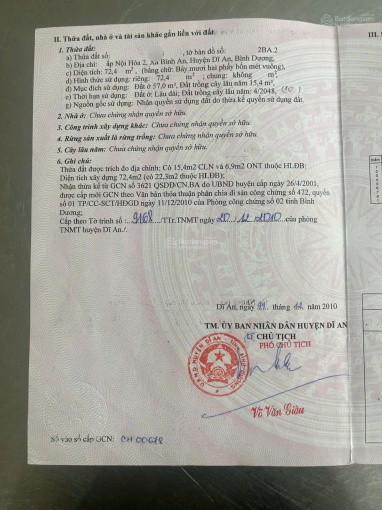 II. Thửa đất, nhà ở và tài sản khác gắn liền với đất:
1. Thửa đất:
a) Thửa đất số: , tờ bản đồ số: 2BA.2
b) Địa chỉ: ấp Nội Hóa 2, Xã Bình An, Huyện Dĩ An, Bình Dương,
c) Diện tích: 72,4 m², (bằng chữ: Bảy mươi hai phẩy bốn mét vuông),
d) Hình thức sử dụng: riêng: 72,4 m²; chung: không m²,
đ) Mục đích sử dụng: Đất ở 57,0 m², Đất trồng cây lâu năm 15,4 m²,
e) Thời hạn sử dụng: Đất ở: Lâu dài; Đất trồng cây lâu năm: 4/2048,
g) Nguồn gốc sử dụng: Nhận quyền sử dụng đất do thừa kế quyền sử dụng đất.
2. Nhà ở: Chưa chứng nhận quyền sở hữu
3. Công trình xây dựng khác: Chưa chứng nhận quyền sở hữu.
4. Rừng sản xuất là rừng trồng: Chưa chứng nhận quyền sở hữu.
5. Cây lâu năm: Chưa chứng nhận quyền sở hữu.
6. Ghi chú:
Thửa đất được trích đo địa chính; Có 15,4m2 CLN và 6,9m2 ONT thuộc HLĐB;
Diện tích xây dựng 72,4m2 (có 22,3m2 thuộc HLĐB);
Nhận thừa kế từ GCN số 3621 QSDĐ/CN.BA do UBND huyện cấp ngày 26/4/2001,
được cấp mới GCN theo Văn bản thỏa thuận phân chia di sản công chứng số 472, quyển
số 01 TP/CC-SCT/HĐGD ngày 11/12/2010 của Phòng công chứng số 02 tỉnh Bình
Dương;
Cấp theo Tờ trình số: 9168/TTr.TNMT ngày 20/12/2010 của phòng
TNMT huyện Dĩ An./.
Dĩ An, ngày tháng 12 năm 2010
TM. ỦY BAN NHÂN DÂN HUYỆN DĨ AN
KT CHỦ TỊCH
PHÓ CHỦ TỊCH
Võ Văn Giàu
Số vào sổ cấp GCN: CH 00678